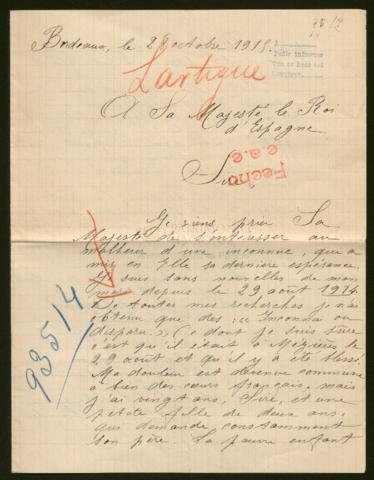 Bordeaux, le 28 octobre 1915.
Pedir informes
Lartigue
A Sa Majesté le Roi
d'Espagne
Fecho
c.a.c.
Sire
Je viens prier Sa
Majesté de s'intéresser au
malheur d'une inconnue, qui a
mis en Elle sa dernière espérance.
Je suis sans nouvelles de mon
mari depuis le 29 août 1914.
De toutes mes recherches je n'ai
obtenu que des "Inconnu ou
disparu". Ce dont je suis sûre
c'est qu'il était à Mézières le
29 août et qu'il y a été blessé.
Ma douleur est devenue commune
à bien des cœurs français, mais
j'ai vingt ans, Sire, et une
petite fille de deux ans,
qui demande constamment
son père. La pauvre enfant
935/4